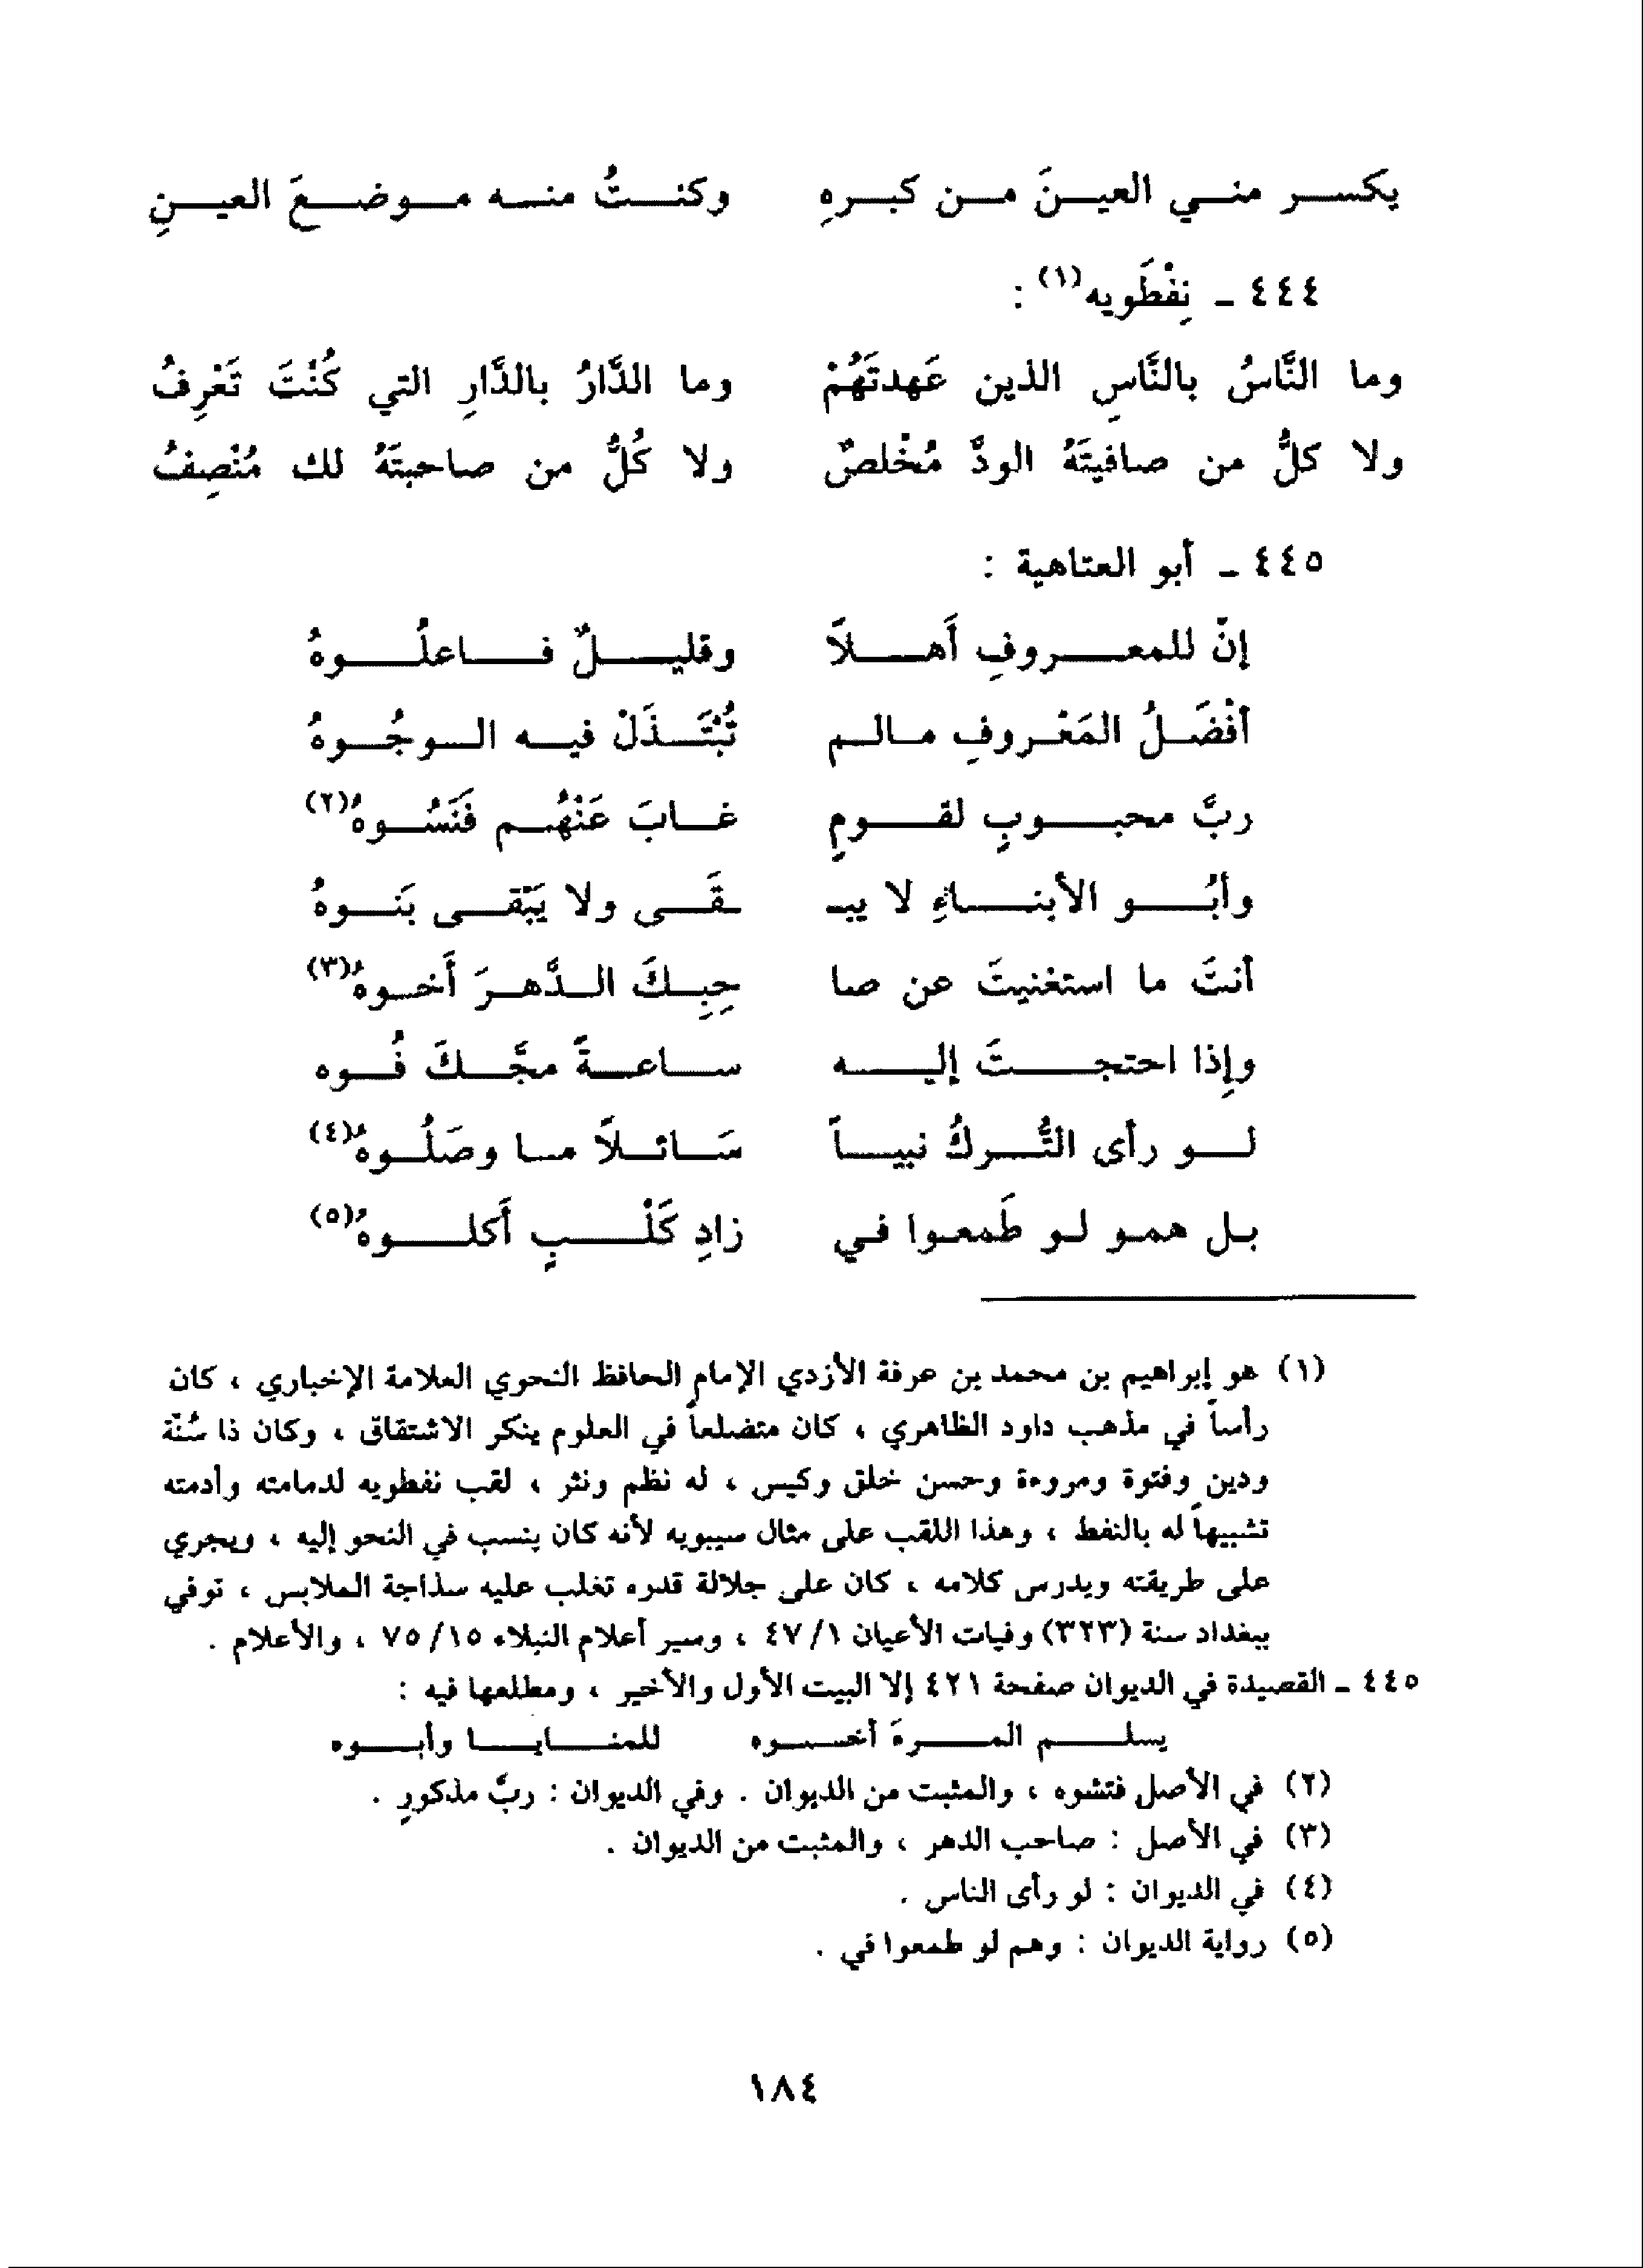 يكسر مني العينَ من كبرهِ وكنتُ منه موضعَ العينِ
٤٤٤ ـ نِفْطَويه(١) :
وما النَّاسُ بالنَّاسِ الذين عَهدتَهُمْ وما الدَّارُ بالدَّارِ التي كُنْتَ تَعْرِفُ
ولا كلُّ من صافيتَهُ الودَّ مُخْلصٌ ولا كُلُّ من صاحبتَهُ لك مُنْصِفُ
٤٤٥ ـ أبو العتاهية :
إنّ للمعروفِ أَهلاً وقليلٌ فاعلُوهُ
أفْضَلُ المَعْروفِ مالم تُبْتَذَلْ فيه الوجُوهُ
ربَّ محبوبٍ لقومٍ غابَ عَنْهُم فَنَسُوهُ(٢)
وأبُو الأبناءِ لا يبـ ـقَى ولا يَبْقى بَنوهُ
أنتَ ما استغنيتَ عن صا حِبِكَ الدَّهرَ أَخوهُ(٣)
وإِذا احتجتَ إليه ساعةً مجَّكَ فُوه
لو رأى التُّركُ نبياً سَائلاً ما وصَلُوهُ(٤)
بل همو لو طَمعوا في زادِ كَلْبٍ أَكلوهُ(٥)
(١) هو إبراهيم بن محمد بن عرفة الأزدي الإمام الحافظ النحوي العلامة الإخباري ، كان
رأساً في مذهب داود الظاهري ، كان متضلعاً في العلوم ينكر الاشتقاق ، وكان ذا سُنّة
ودين وفتوة ومروءة وحسن خلق وكيس ، له نظم ونثر ، لقب نفطويه لدمامته وأدمته
تشبيهاً له بالنفط ، وهذا اللقب على مثال سيبويه لأنه كان ينسب في النحو إليه ، ويجري
على طريقته ويدرس كلامه ، كان على جلالة قدره تغلب عليه سذاجة الملابس ، توفي
ببغداد سنة (٣٢٣) وفيات الأعيان ٤٧/١ ، وسير أعلام النبلاء ٧٥/١٥ ، والأعلام .
٤٤٥ ـ القصيدة في الديوان صفحة ٤٢١ إلا البيت الأول والأخير ، ومطلعها فيه :
يسلم المرءَ أخوه للمنايا وأبوه
(٢) في الأصل فتشوه ، والمثبت من الديوان . وفي الديوان : ربَّ مذكورٍ .
(٣) في الأصل : صاحب الدهر ، والمثبت من الديوان .
(٤) في الديوان : لو رأى الناس .
(٥) رواية الديوان : وهم لو طمعوا في .
١٨٤